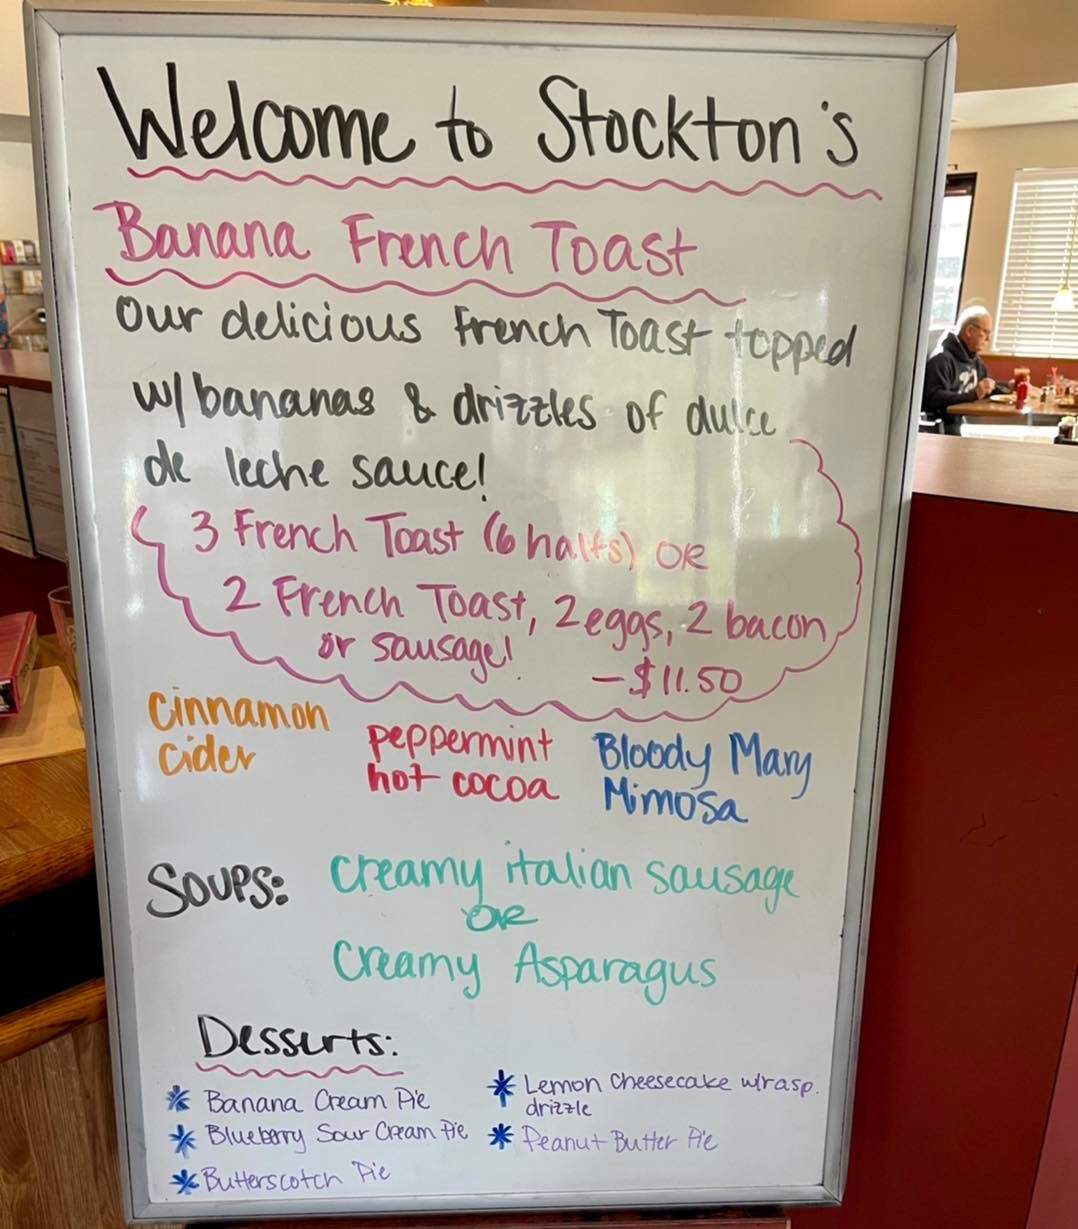 Welcome to Stockton's
Banana French Toast
Our delicious French Toast topped
w/ bananas & drizzles of dulce
de leche sauce!
3 French Toast (6 halfs) OR
2 French Toast, 2 eggs, 2 bacon
or sausage!
- $11.50
Cinnamon
Cider
peppermint
hot cocoa
Bloody Mary
Mimosa
Soups:
Creamy italian sausage
OR
Creamy Asparagus
Desserts:
* Banana Cream Pie
* Blueberry Sour Cream Pie
* Butterscotch Pie
* Lemon Cheesecake w/rasp.
drizzle
* Peanut Butter Pie